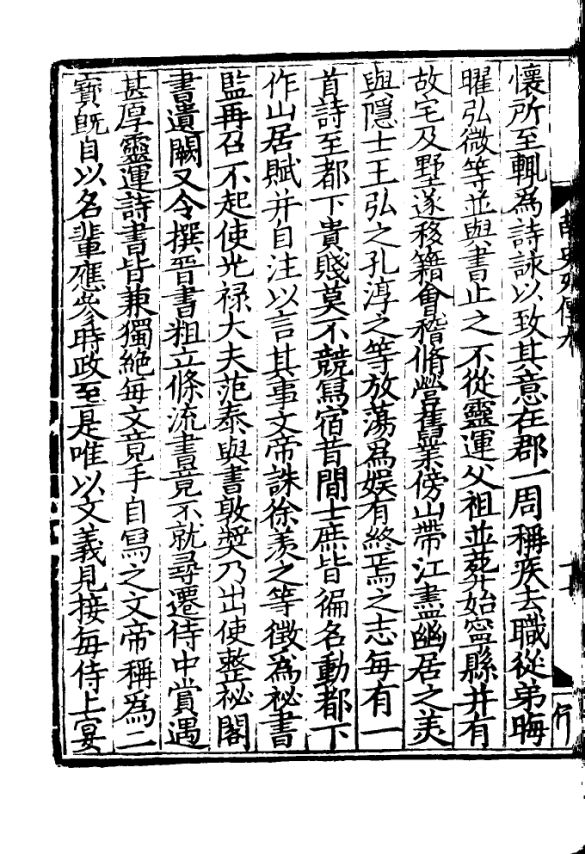 懷所至輒為詩詠以致其意在郡一周稱疾去職從弟晦
曜弘微等並與書止之不從靈運父祖並葬始寧縣并有
故宅及墅遂移籍會稽脩營舊業傍山帶江盡幽居之美
與隱士王弘之孔淳之等放蕩為娱有終焉之志每有一
首詩至都下貴賤莫不競寫宿昔間士庶皆徧名動都下
作山居賦并自注以言其事文帝誅徐羨之等徵為祕書
監再召不起使光禄大夫范泰與書敦奬乃出使整祕閣
書遺闕又令撰晉書粗立條流書竟不就尋遷侍中賞遇
甚厚靈運詩書皆兼獨絶每文竟手自寫之文帝稱為二
寶既自以名輩應參時政至是唯以文義見接每侍上宴